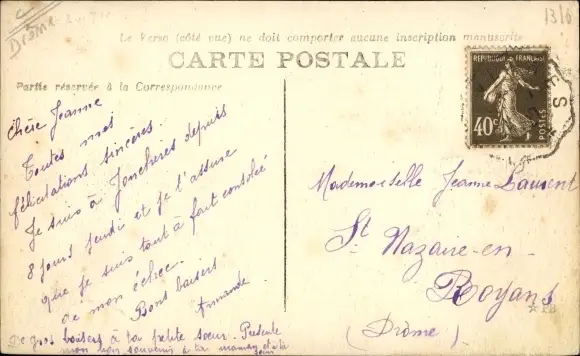 Drôme
1316
Le Verso (côté vue) ne doit comporter aucune inscription manuscrite
CARTE POSTALE
Partie réservée à la Correspondance
REPUBLIQUE FRANÇAISE
40c
POSTES
Chère Jeanne
Toutes mes
félicitations sincères.
Je suis à Jonchères depuis
8 jours jeudi et je t'assure
que je suis tout à fait consolée
de mon échec.
Bons baisers
Armande
De gros baisers à ta petite sœur. Présente
mon bon souvenir à ta maman et à ta
Mademoiselle Jeanne Laurent
St Nazaire-en-
Royans
(Drôme)